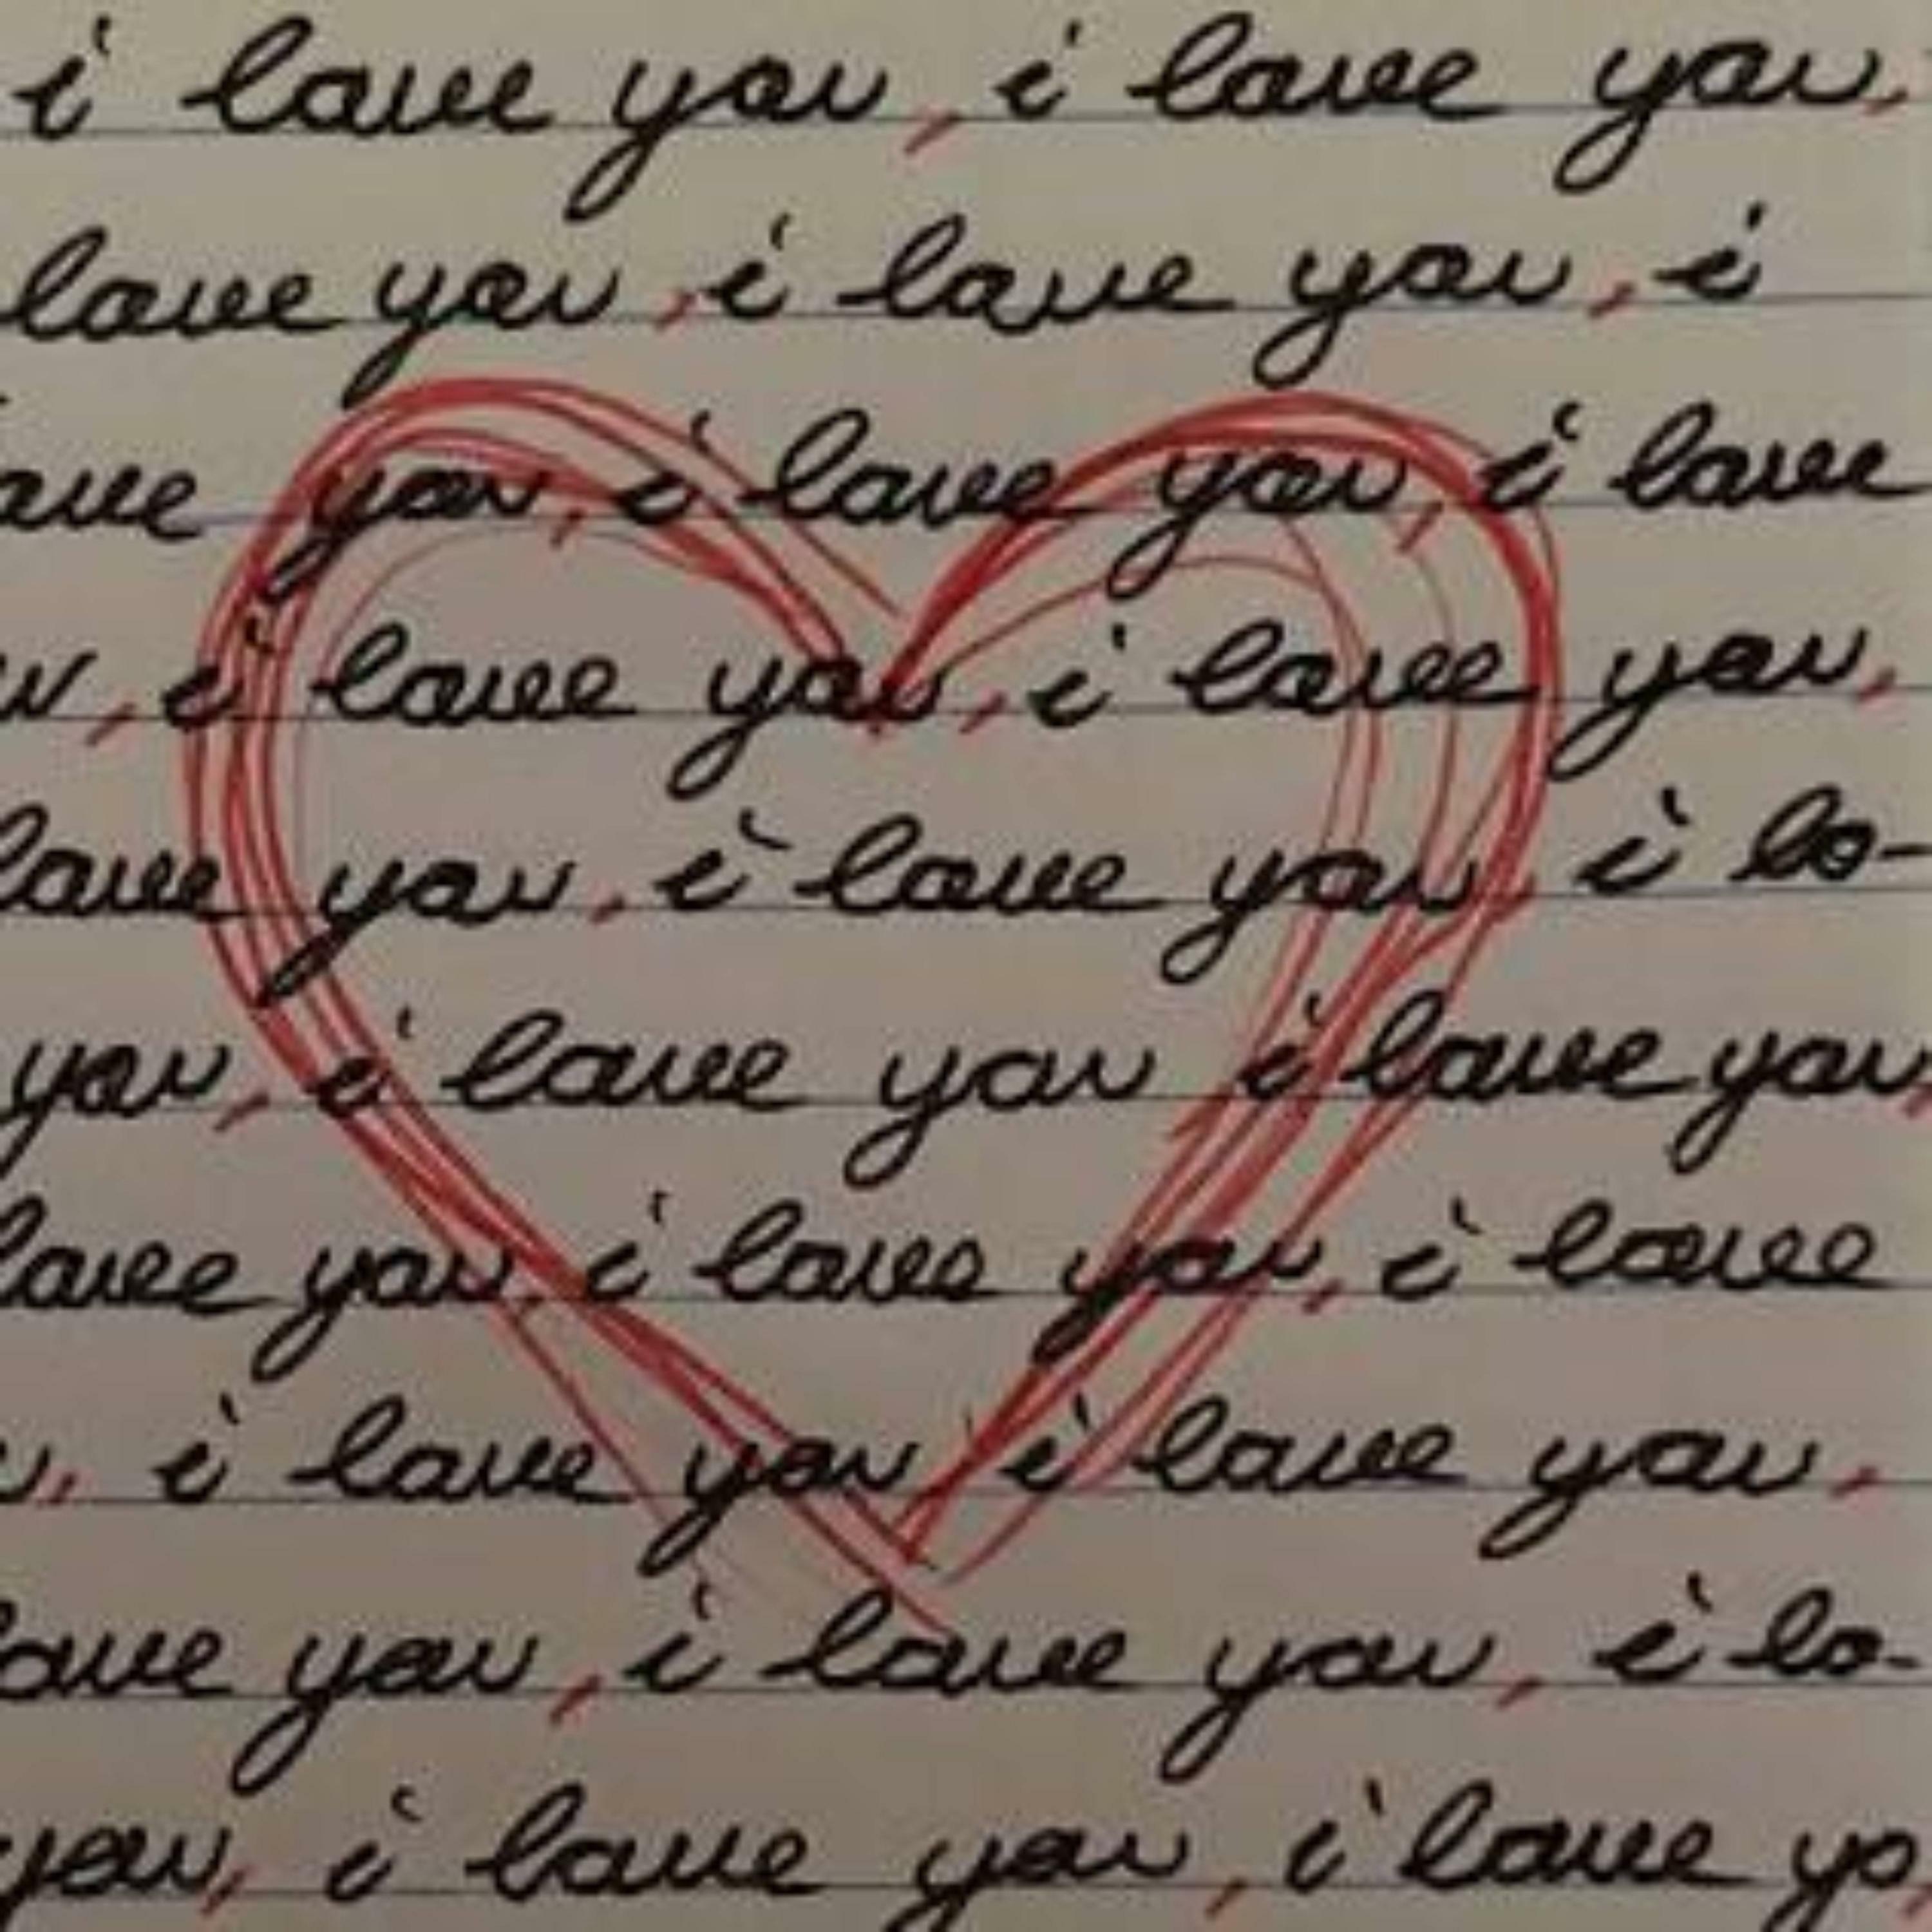 i love you, i love you,
love you, i love you, i
ove you, i love you, i love
u, i love you, i love you,
love you, i love you, i lo-
you, i love you i love you,
love you, i love you, i love
u, i love you i love you,
love you, i love you, i lo-
you, i love you, i love yo,